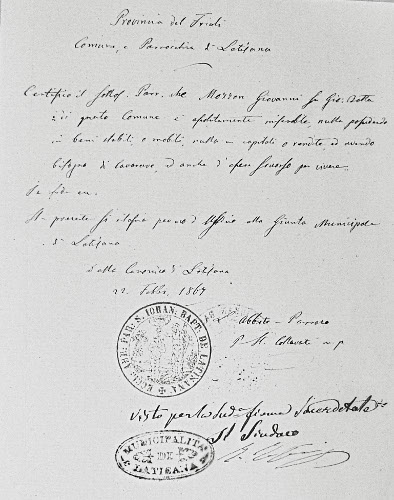 Provincia del Friuli
Comune, e Parrocchia di Latisana
Certifico il sottos. Parr. che Mozzon Giovanni fu Gio. Batta
di questo Comune è assolutamente miserabile nulla possedendo
in beni stabili, o mobili, nulla in capitali o rendite, ed avendo
bisogno di lavorare, ed anche d'esser soccorso per vivere.
In fede ecc.
Il presente si rilascia per uso d'Ufficio alla Giunta Municipale
di Latisana
Dalla Canonica di Latisana
22 Febbr. 1867
Abbate - Parroco
ECCL. ABB. PAR. S. IOHAN. BAPT. DE LATISANA
Visto per la sud.a firma Sacerdotale
Il Sindaco
MUNICIPALITÀ DI LATISANA